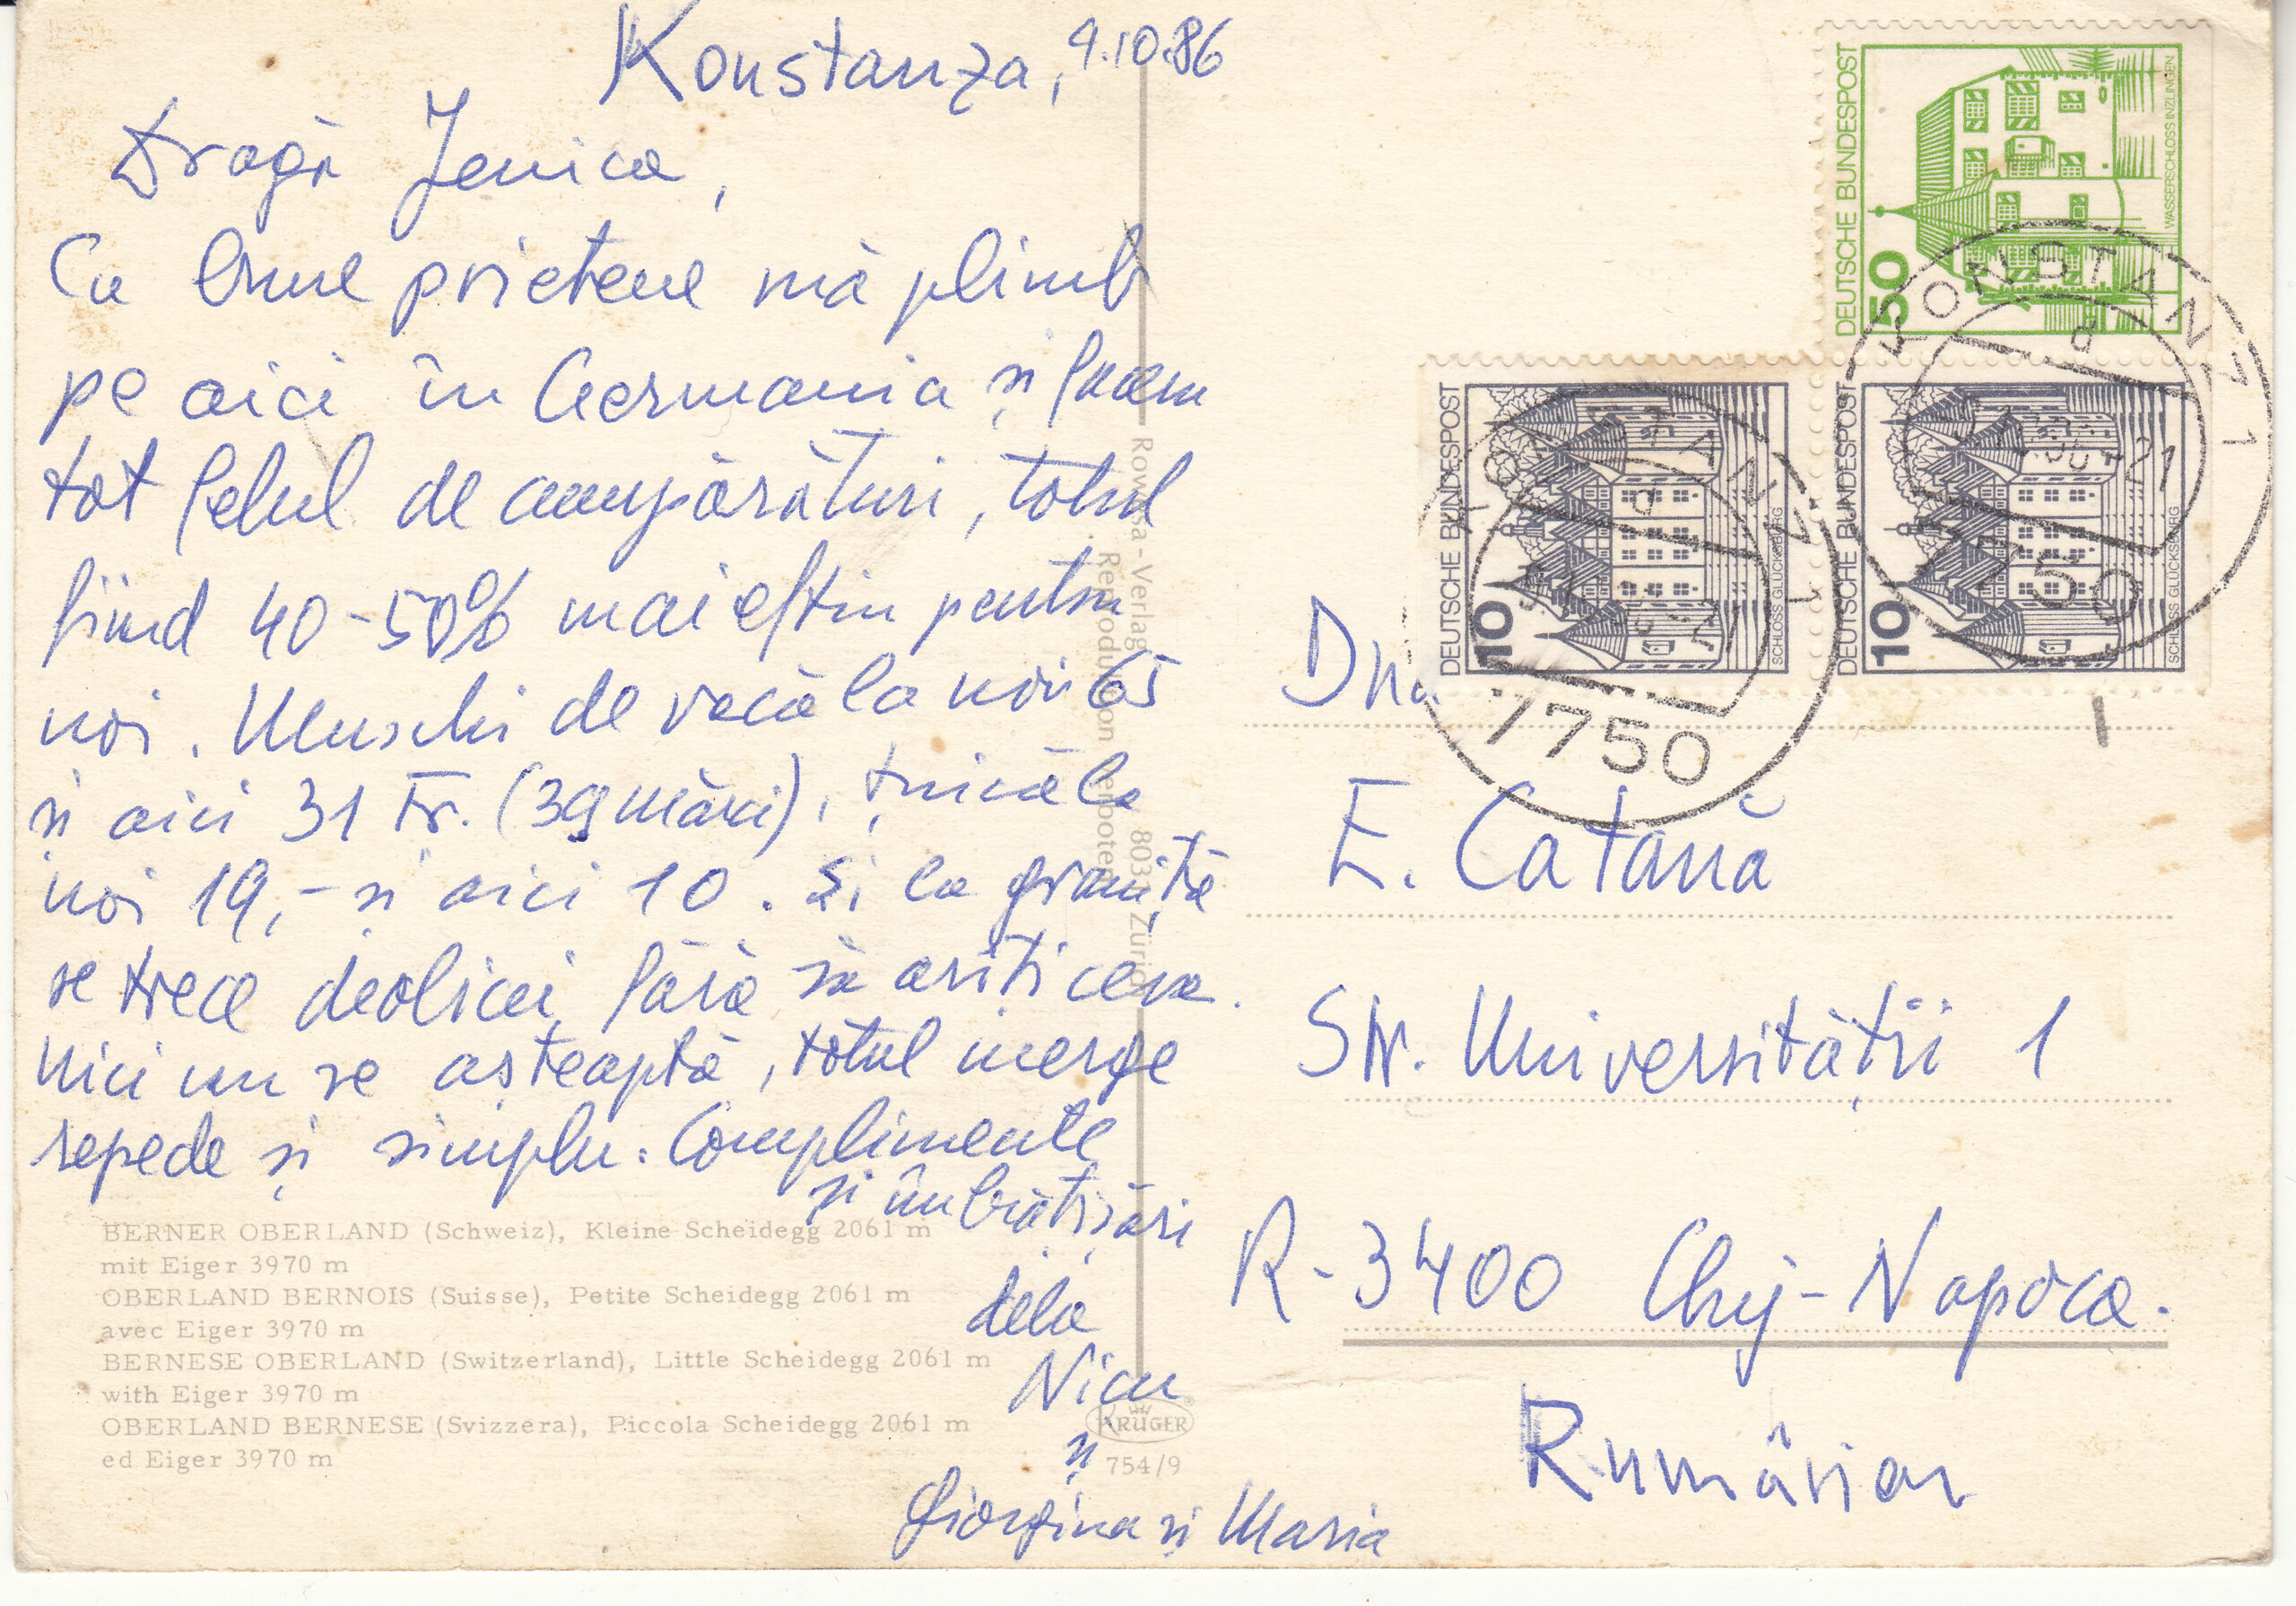 Konstanza, 9.10.86
Dragă Jenica,
Cu bune prietene mă plimb
pe aici în Germania și facem
tot felul de cumpărături, totul
fiind 40-50% mai eftin pentru
noi. Muschi de vacă la noi 65
și aici 31 Fr. (39 mărci), șuncă la
noi 19,- și aici 10. Și la graniță
se trece deobicei fără să arăți ceva.
Nici nu se așteaptă, totul merge
repede și simplu. Complimente
și îmbrățișări
dela
Nicu
și
Giorgina și Maria
BERNER OBERLAND (Schweiz), Kleine Scheidegg 2061 m
mit Eiger 3970 m
OBERLAND BERNOIS (Suisse), Petite Scheidegg 2061 m
avec Eiger 3970 m
BERNESE OBERLAND (Switzerland), Little Scheidegg 2061 m
with Eiger 3970 m
OBERLAND BERNESE (Svizzera), Piccola Scheidegg 2061 m
ed Eiger 3970 m
KRÜGER
754/9
Verlag 803 Zürich
Reproduktion verboten
DEUTSCHE BUNDESPOST
50
WASSERSCHLOSS INZLINGEN
DEUTSCHE BUNDESPOST
10
SCHLOSS GLÜCKSBURG
DEUTSCHE BUNDESPOST
10
SCHLOSS GLÜCKSBURG
KONSTANZ 1
d
7750
KONSTANZ 1
d
7750
Dna
E. Catană
Str. Universității 1
R-3400 Cluj-Napoca.
Rumänien